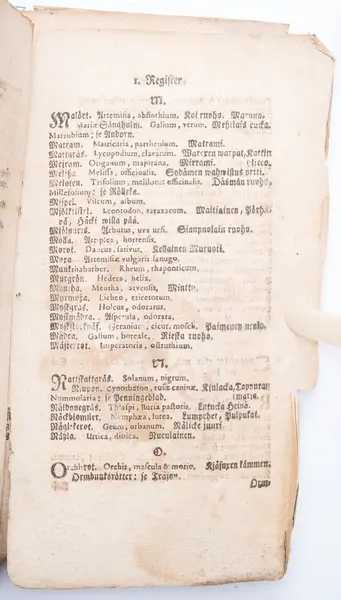 1. Register.
M.
Malört. Artemisia, absinthium. Koi ruoho. Marum.
Mariæ Sänghalm. Galium, verum. Mehiläis cucka.
Marrubium; se Andorn.
Matram. Matricaria, parthenium. Matrami.
Mattgräs. Lycopodium, clavatum.
Mejram. Origanum, majorana. Mirrami.
Melissa. Melissa, officinalis. Sydämen
Meloten. Trifolium, melilotus officinalis. ruoho.
Millefolium; se Rölicka.
Mispel. Viscum, album.
Mjölktistel. Leontodon, taraxacum. Maitiainen,
Mjölonris. Arbutus, uva ursi. Sianpuolain ruoho.
Molla. Atriplex, hortensis.
Morot. Daucus, sativus. Keltainen
Moxa. Artemisiæ vulgaris lanugo.
Munkrhabarber. Rheum, rhaponticum.
Murgrön. Hedera, helix.
Myntha. Mentha, arvensis. Minttu.
Myrmossa. Lichen, ericetorum.
Myskgräs. Holcus, odoratus.
Myskmadra. Asperula, odorata.
Geranium, cicut. mosch. Paimenen
Mådra. Galium, boreale. Rieska ruoho.
Mästerrot. Imperatoria, ostruthium.
N.
Nattskattgräs. Solanum, nigrum.
Nupon. Cynosbaton, rosæ caninæ.
Nummularia; se Penningeblad.
Thlaspi, bursa pastoris. Lytucka Heinä.
Näckblomster. Nymphæa, lutea. Lumpehet, Pulpukat.
Geum, urbanum. juuri.
Nässla. Urtica, dioica.
O.
Orchisrot. Orchis, mascula & morio. kämmen.
Ormbunksrötter; se Träjon.
Orm-